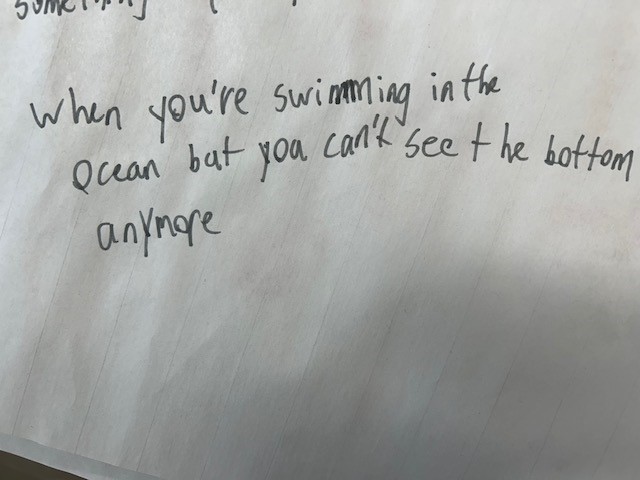 something
when you're swimming in the
ocean but you can't see the bottom
anymore